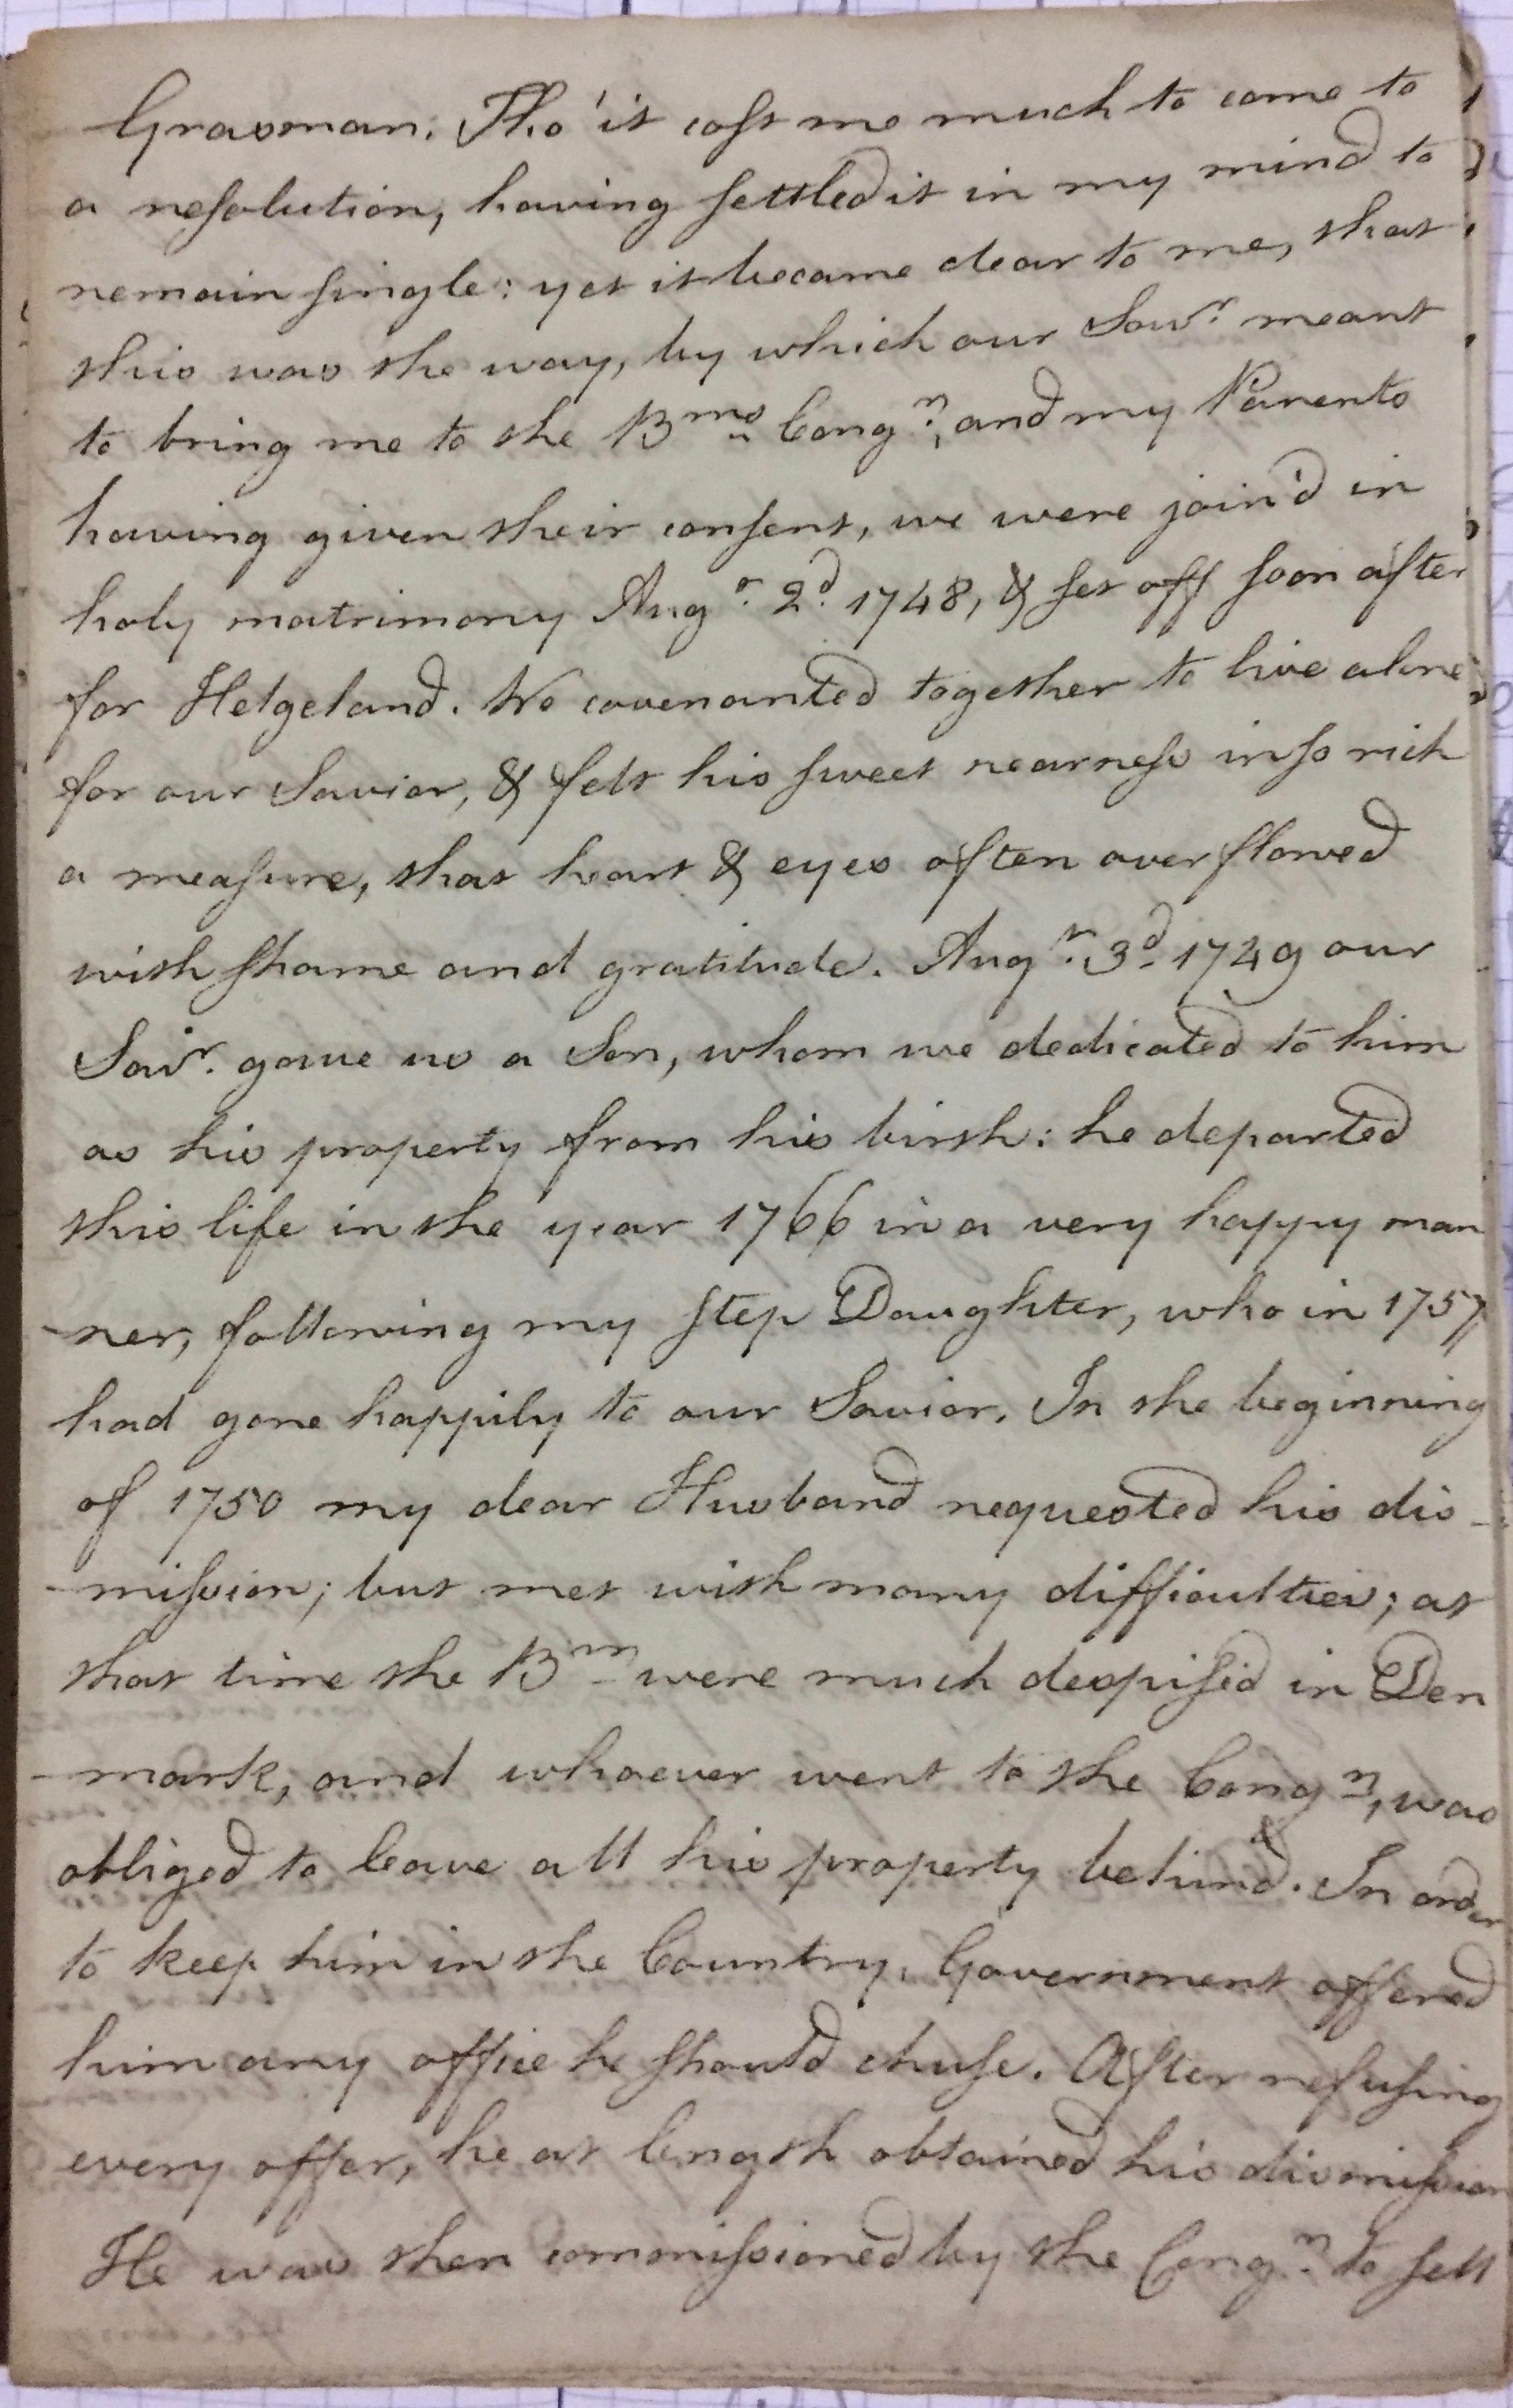 Grasman. Tho' it cost me much to come to
a resolution, having settled it in my mind to
remain single: yet it became clear to me, that
this was the way, by which our Savr. meant
to bring me to the Brns. Congn., and my Parents
having given their consent, we were join'd in
holy matrimony Augt. 2d. 1748, & set off soon after
for Helgeland. We covenanted together to live alone
for our Savior, & felt his sweet nearness in so rich
a measure, that heart & eyes often overflowed
with shame and gratitude. Augt. 3d. 1749 our
Savr. gave us a Son, whom we dedicated to him
as his property from his birth: he departed
this life in the year 1766 in a very happy man
-ner, following my step Daughter, who in 1757,
had gone happily to our Savior. In the beginning
of 1750 my dear Husband requested his dis-
-mission; but met with many difficulties; at
that time the Brn. were much despised in Den
-mark, and whoever went to the Congn., was
obliged to leave all his property behind. In order
to keep him in the Country, Government offered
him any office he should chuse. After refusing
every offer, he at length obtained his dismission
He was then commissioned by the Congn. to sell